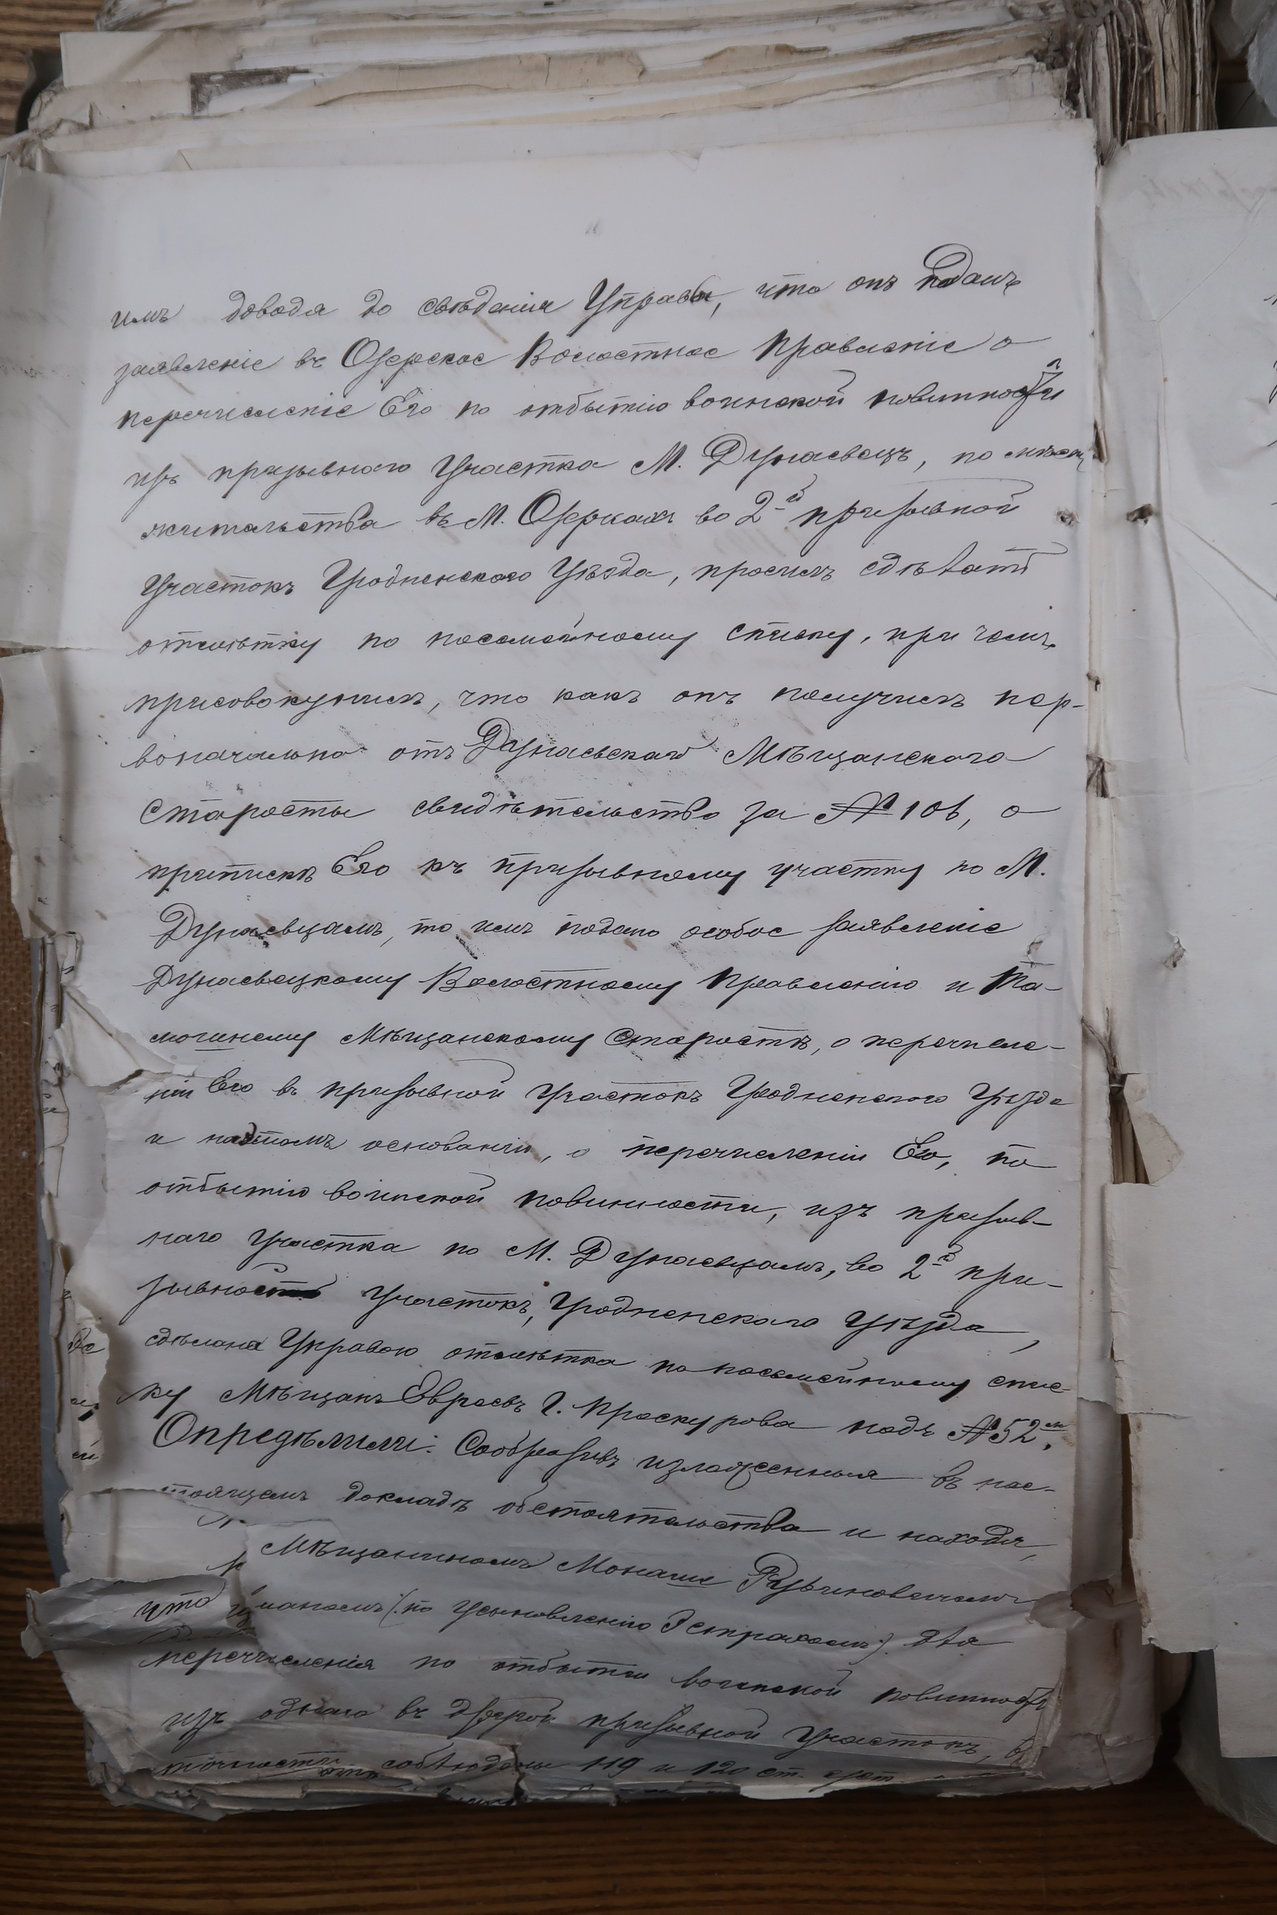 имъ доводя до свѣдѣнія Управы, что онъ подалъ
заявленіе въ Озерское Волостное Правленіе о
перечисленіе Его по отбытію воинской повинности
изъ призывнаго участка М. Дунаевецъ, по мѣсту
жительства въ М. Озеркахъ во 2-й призывной
участокъ Гродненскаго Уѣзда, просилъ сдѣлать
отмѣтку по посемейному списку, при чемъ
присовокупилъ, что какъ онъ получилъ пер-
воначально отъ Дунаевскаго Мѣщанского
Старосты свидѣтельство за № 106, о
припискѣ Его къ призывному участку по М.
Дунаевцамъ, то имъ подано особое заявленіе
Дунаевецкому Волостному Правленію и та-
мошнему Мѣщанскому Старостѣ, о перечисле-
ніи Его въ призывной участокъ Гродненского Уѣзда
и на томъ основаніи, о перечисленіи Его, по
отбытію воинской повинности, изъ призыв-
наго участка по М. Дунаевцамъ, во 2-й при-
зывной участокъ, Гродненскаго Уѣзда,
сдѣлана Управою отмѣтка по посемейному спис-
ку Мѣщанъ Евреевъ Г. Проскурова подъ № 52м.
Опредѣлили: Сообразивъ изложенныя въ нас-
тоящемъ докладѣ обстоятельства и находя,
что Мѣщаниномъ Монашемъ Рувиновичемъ
(по усыновленію) для
перечисленія по отбытіи воинской повинности
изъ одного въ другой призывной участокъ, въ
точности соблюдены 119 и 120 ст. уст.